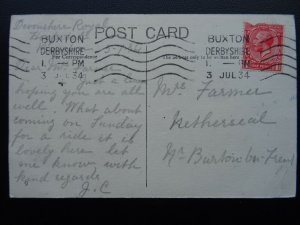 Devonshire Royal
POST CARD
BUXTON
DERBYSHIRE
1- PM
3 JUL 34
BUXTON
DERBYSHIRE
1- PM
3 JUL 34
For Correspondence
The address only to be written here
Dear
Just a line
hoping you are all
well. What about
coming on Sunday
for a ride it is
lovely here let
me know with
kind regards
J.C
Mrs Farmer
Netherseal
Nr Burton on Trent